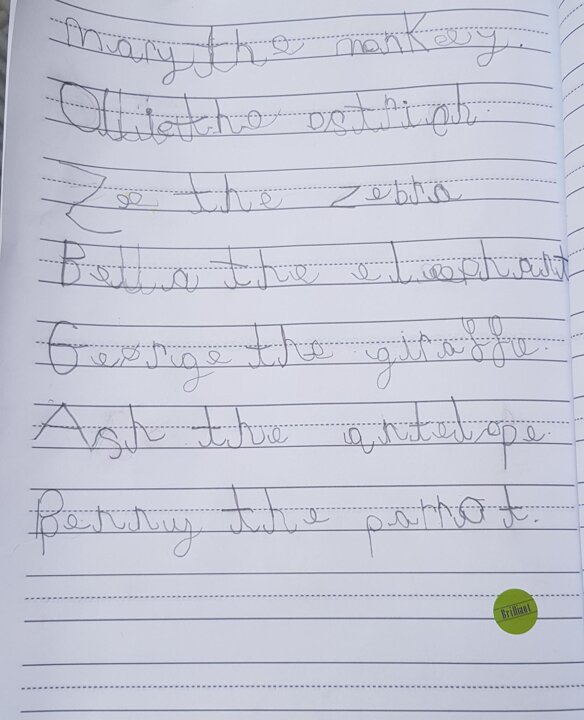 Mary the monkey.
Ollie the ostrich
Zoe the zebra
Bella the eleephant
George the giraffe.
Ash the antelope.
Penny the parrot.
Brilliant